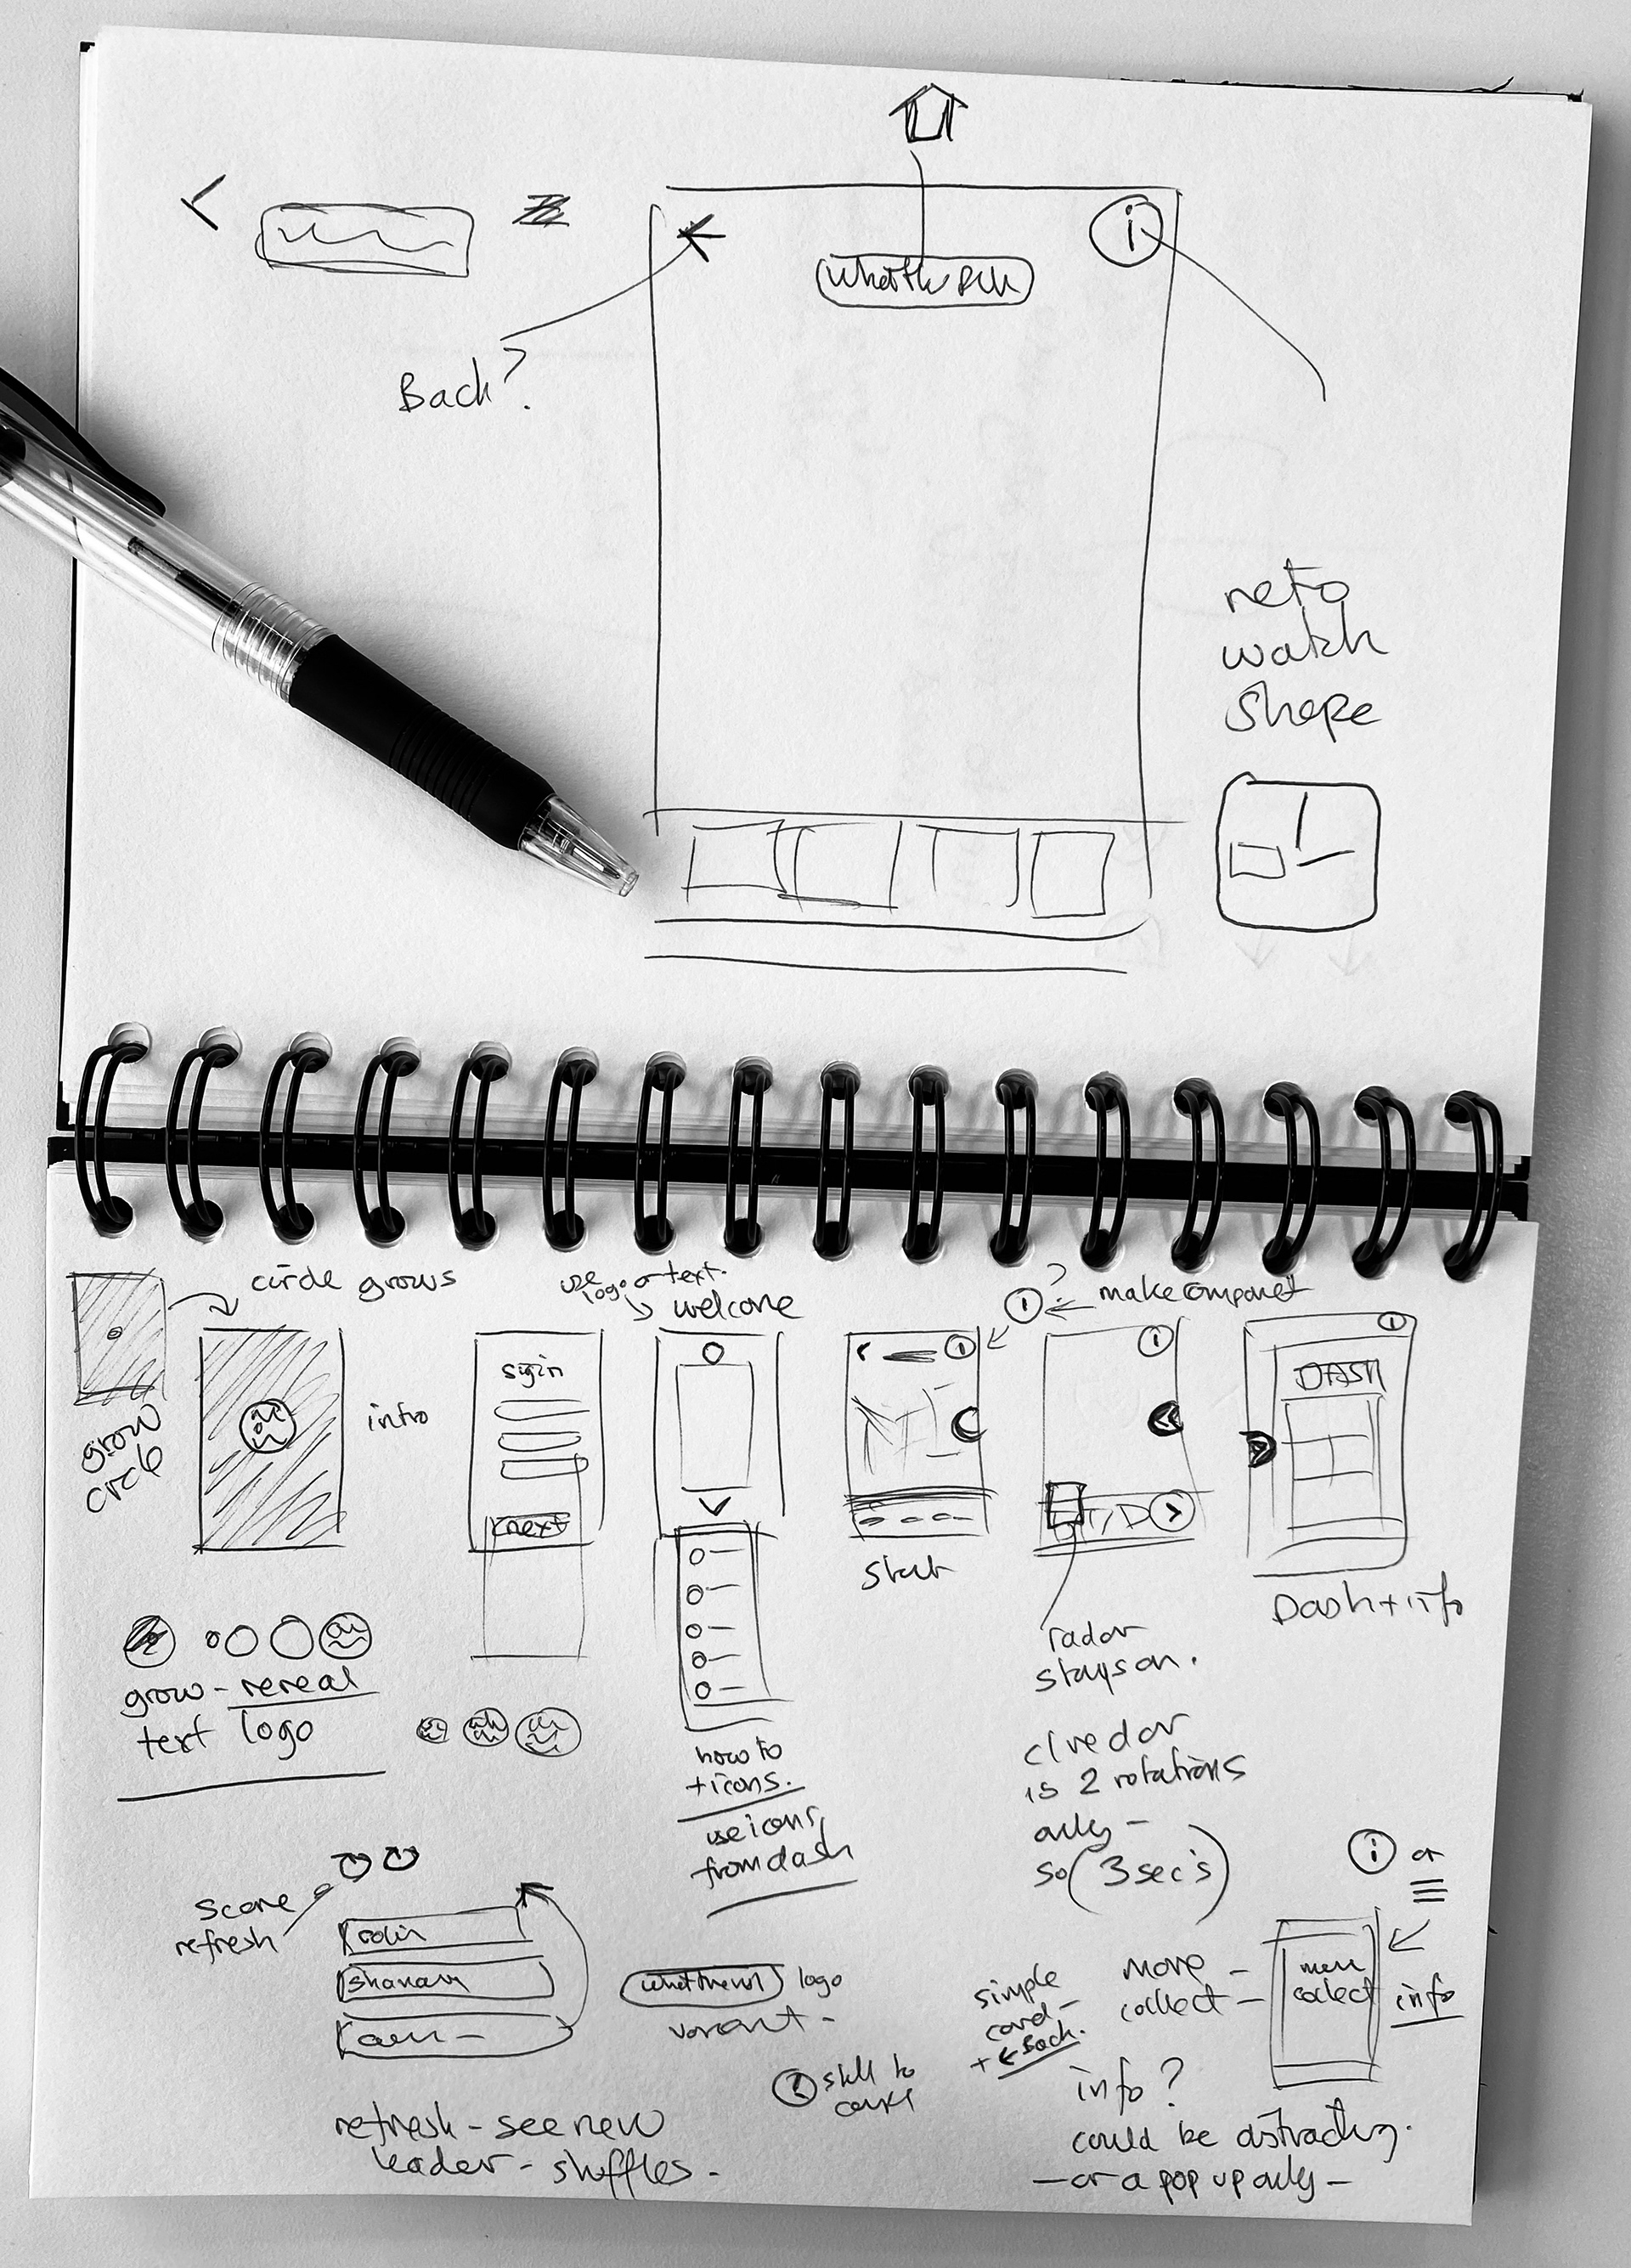 i
Back?
reto
watch
shape
circle grows
use
logo or text.
welcome
?
i
make componet
grow
circle
intro
sigin
next
i
start
i
i
DASH
Dash + info
radar
stays on.
grow - reveal
text logo
how to
+ icons.
use icons
from dash
is 2 rotations
only -
so (3 sec's)
i or
score
refresh
robin
logo
variant -
simple
card -
+ ← Back.
more -
collect -
more
collect
info
i still to
info?
could be distracting.
- or a pop up only -
refresh - see new
leader - shuffles.